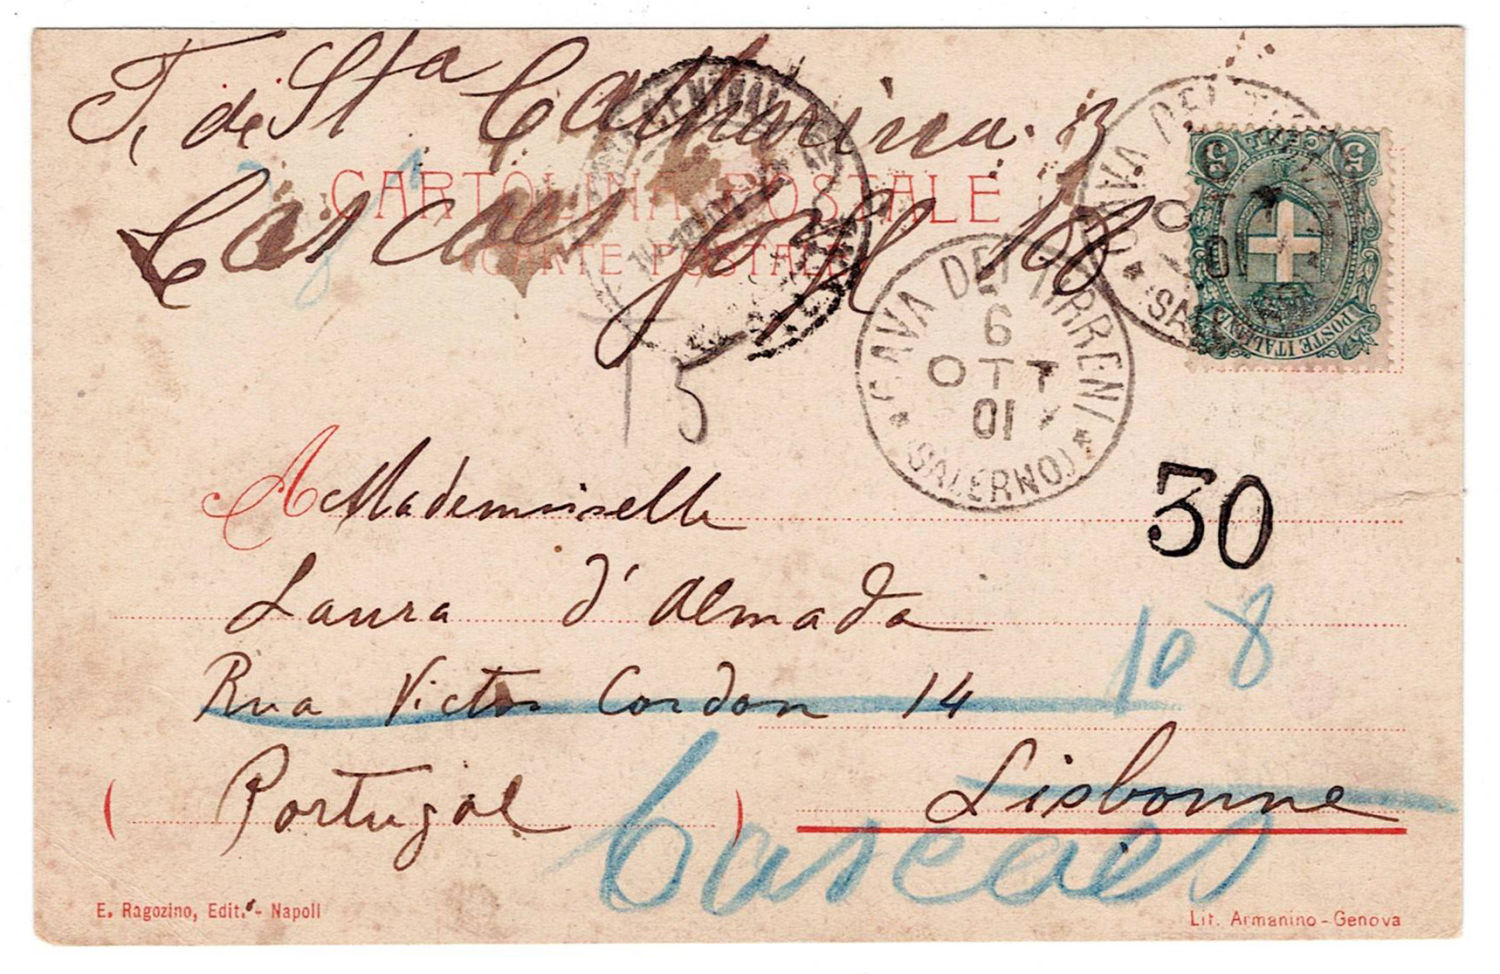 T. de Sta Catharina 3
CARTOLINA POSTALE
Cascaes
CARTE POSTALE
CENTRAL
CAVA DEI TIRRENI
6
OTT
01
(SALERNO)
CAVA DEI
OTT
01
5 CENT 5
POSTE ITALIANE
T 5
30
A Mademoiselle
Laura d'Almada
108
Rua Victor Cordon 14
(Portugal) Lisbonne
Cascaes
E. Ragozino, Edit. - Napoli
Lit. Armanino - Genova